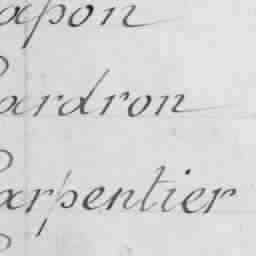 apon
ardron
arpentier